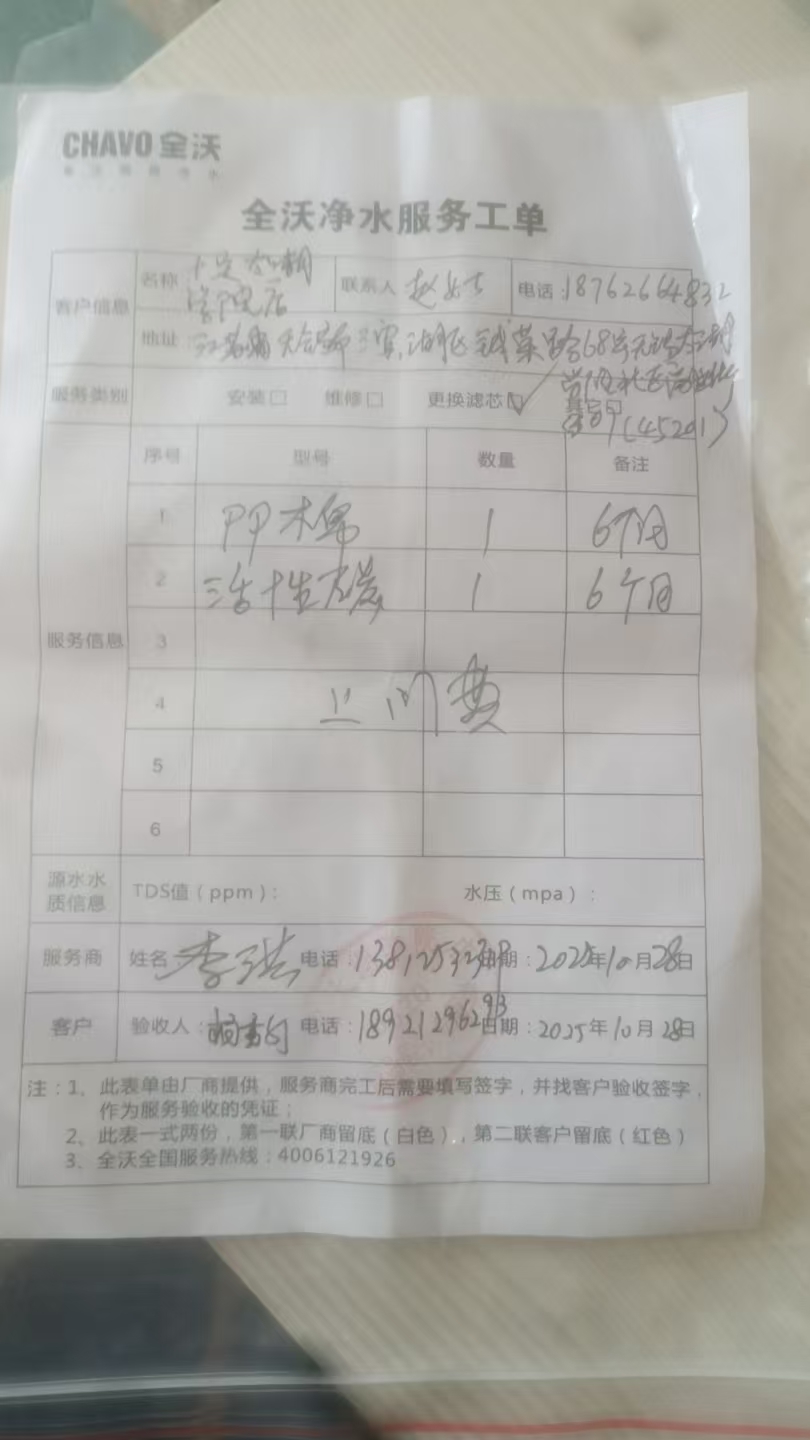 CHAVO 全沃
全沃净水服务工单
客户信息 名称 联系人 赵女士 电话:18762664832
地址 江苏省无锡市滨湖区钱荣路68号无锡太湖
学院
服务类别 安装□ 维修□ 更换滤芯☑ 其它□
(45201)
序号 型号 数量 备注
1 PP棉 1 6个月
2 活性炭 1 6个月
服务信息 3
4 上门费
5
6
源水水质信息 TDS值(ppm): 水压(mpa):
服务商 姓名: 李 电话: 日期:2025年10月28日
客户 验收人: 电话:18921296293 日期:2025年10月28日
注:1、此表单由厂商提供,服务商完工后需要填写签字,并找客户验收签字,
作为服务验收的凭证;
2、此表一式两份,第一联厂商留底(白色),第二联客户留底(红色)
3、全沃全国服务热线:4006121926